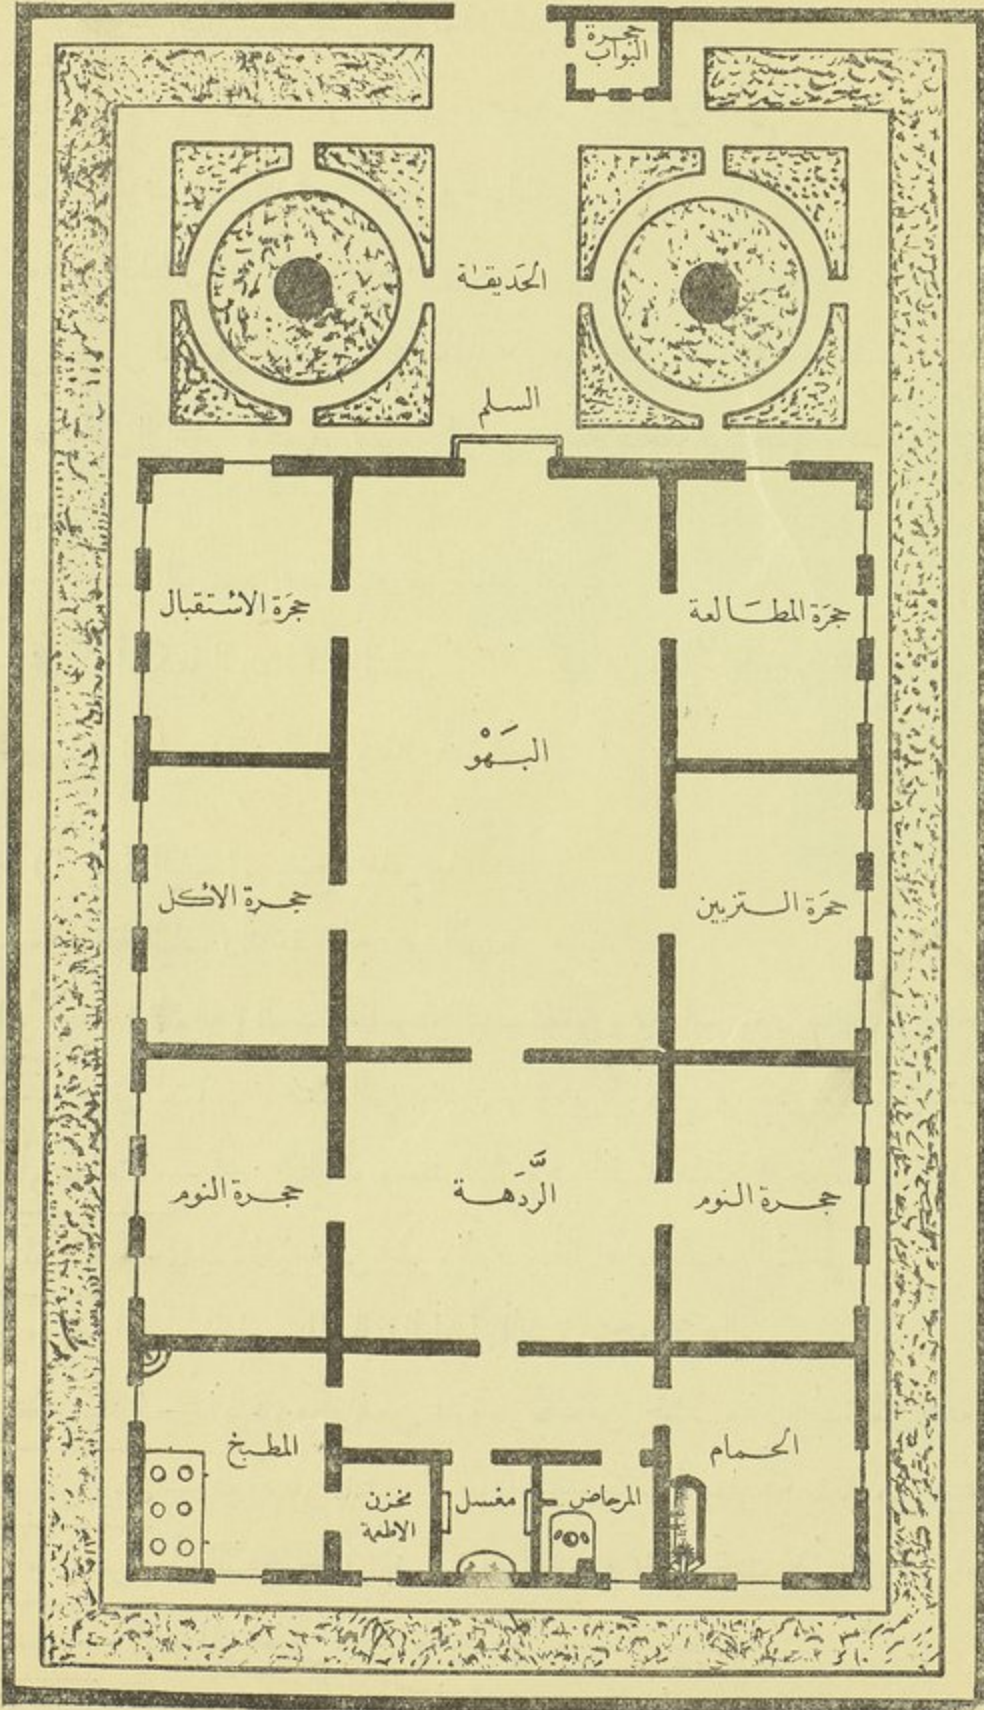 حجرة
البواب
الحَديقة
السلم
حجَرة المطَالعة
حجَرة الاستقبال
البَهْو
حجَرة التزيين
حجرة الأكل
حجرة النوم
الرَّدَهة
حجرة النوم
الحمام
المرحاض
مغسل
مخزن
الاطعمة
المطبخ